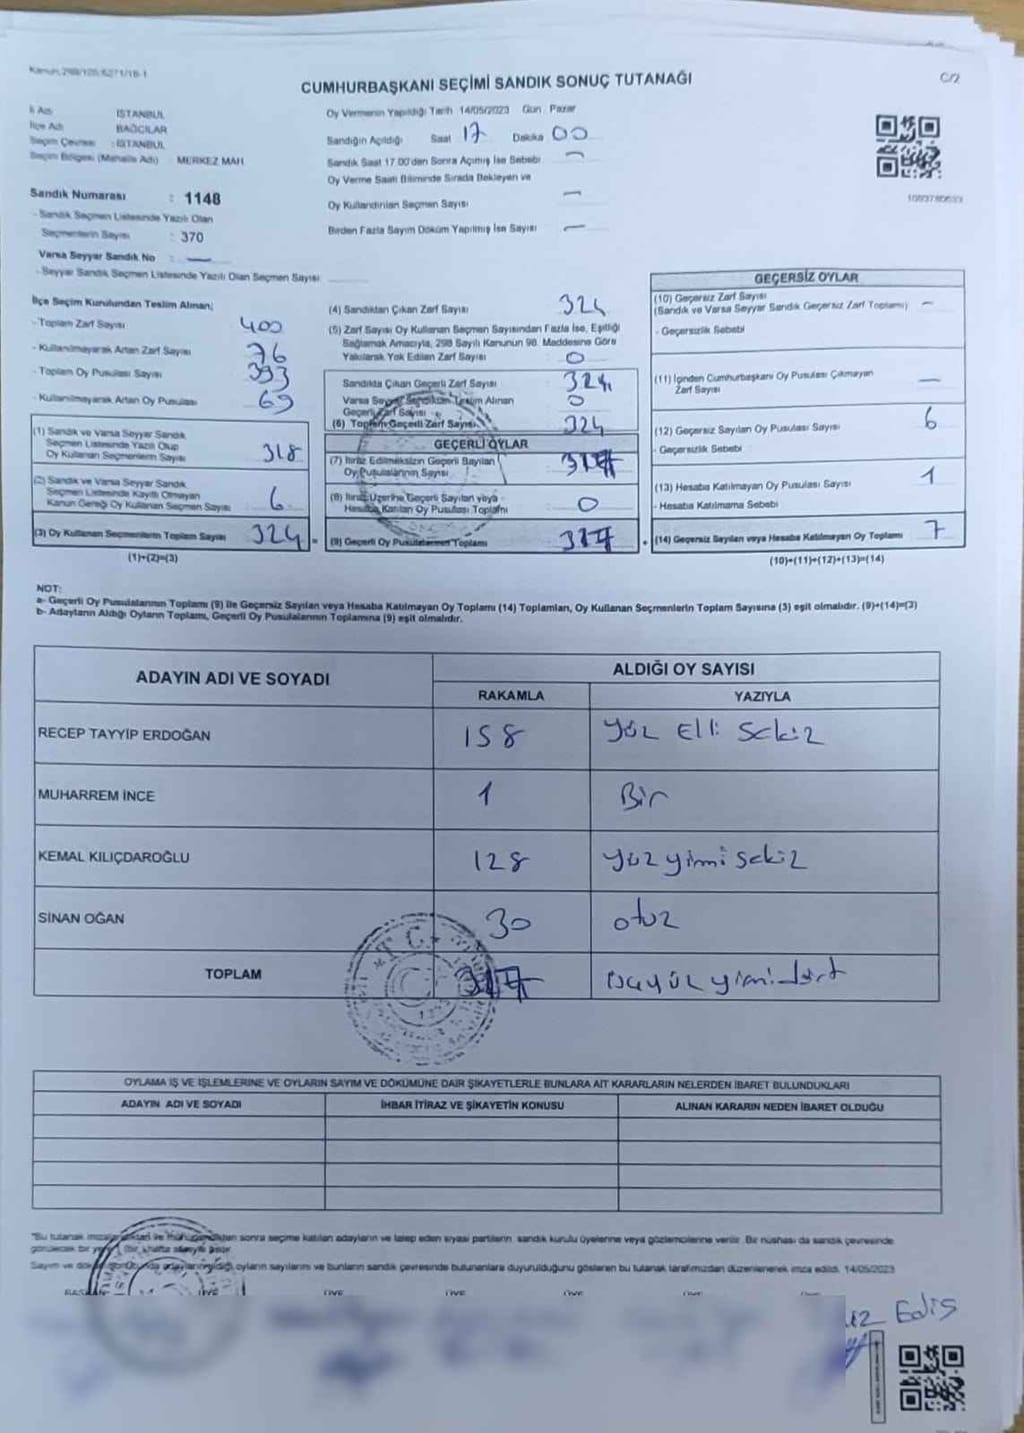 Kanun:298/105,6271/16-1
CUMHURBAŞKANI SEÇİMİ SANDIK SONUÇ TUTANAĞI
C/2
İl Adı : İSTANBUL
İlçe Adı : BAĞCILAR
Seçim Çevresi : İSTANBUL
Seçim Bölgesi (Mahalle Adı) : MERKEZ MAH.
Sandık Numarası : 1148
- Sandık Seçmen Listesinde Yazılı Olan
Seçmenlerin Sayısı : 370
Varsa Seyyar Sandık No : —
- Seyyar Sandık Seçmen Listesinde Yazılı Olan Seçmen Sayısı:
Oy Vermenin Yapıldığı Tarih 14/05/2023 Gün : Pazar
Sandığın Açıldığı Saat 17 Dakika 00
Sandık Saat 17.00'den Sonra Açılmış İse Sebebi —
Oy Verme Saati Bitiminde Sırada Bekleyen ve
Oy Kullandırılan Seçmen Sayısı —
Birden Fazla Sayım Döküm Yapılmış İse Sayısı —
İlçe Seçim Kurulundan Teslim Alınan;
- Toplam Zarf Sayısı 400
- Kullanılmayarak Artan Zarf Sayısı 76
- Toplam Oy Pusulası Sayısı 393
- Kullanılmayarak Artan Oy Pusulası 69
(1) Sandık ve Varsa Seyyar Sandık
Seçmen Listesinde Yazılı Olup
Oy Kullanan Seçmenlerin Sayısı 318
(2) Sandık ve Varsa Seyyar Sandık
Seçmen Listesinde Kayıtlı Olmayan
Kanun Gereği Oy Kullanan Seçmen Sayısı 6
(3) Oy Kullanan Seçmenlerin Toplam Sayısı 324
(1)+(2)=(3)
(4) Sandıktan Çıkan Zarf Sayısı 324
(5) Zarf Sayısı Oy Kullanan Seçmen Sayısından Fazla İse, Eşitliği
Sağlamak Amacıyla, 298 Sayılı Kanunun 98. Maddesine Göre
Yakılarak Yok Edilen Zarf Sayısı 0
Sandıkta Çıkan Geçerli Zarf Sayısı 324
Varsa Seyyar Sandıktan Teslim Alınan
Geçerli Zarf Sayısı 0
(6) Toplam Geçerli Zarf Sayısı 324
GEÇERLİ OYLAR
(7) İtiraz Edilmeksizin Geçerli Sayılan
Oy Pusulalarının Sayısı 317
(8) İtiraz Üzerine Geçerli Sayılan veya
Hesaba Katılan Oy Pusulası Toplamı 0
(9) Geçerli Oy Pusulalarının Toplamı 317
GEÇERSİZ OYLAR
(10) Geçersiz Zarf Sayısı
(Sandık ve Varsa Seyyar Sandık Geçersiz Zarf Toplamı) —
- Geçersizlik Sebebi
(11) İçinden Cumhurbaşkanı Oy Pusulası Çıkmayan
Zarf Sayısı —
(12) Geçersiz Sayılan Oy Pusulası Sayısı 6
- Geçersizlik Sebebi
(13) Hesaba Katılmayan Oy Pusulası Sayısı 1
- Hesaba Katılmama Sebebi
(14) Geçersiz Sayılan veya Hesaba Katılmayan Oy Toplamı 7
(10)+(11)+(12)+(13)=(14)
NOT:
a- Geçerli Oy Pusulalarının Toplamı (9) ile Geçersiz Sayılan veya Hesaba Katılmayan Oy Toplamı (14) Toplamları, Oy Kullanan Seçmenlerin Toplam Sayısına (3) eşit olmalıdır. (9)+(14)=(3)
b- Adayların Aldığı Oyların Toplamı, Geçerli Oy Pusulalarının Toplamına (9) eşit olmalıdır.
ADAYIN ADI VE SOYADI
ALDIĞI OY SAYISI
RAKAMLA YAZIYLA
RECEP TAYYİP ERDOĞAN 158 yüz Elli Sekiz
MUHARREM İNCE 1 Bir
KEMAL KILIÇDAROĞLU 128 yüz yimi sekiz
SİNAN OĞAN 30 otuz
TOPLAM 317 üçyüz yimidört
T.C.
OYLAMA İŞ VE İŞLEMLERİNE VE OYLARIN SAYIM VE DÖKÜMÜNE DAİR ŞİKAYETLERLE BUNLARA AİT KARARLARIN NELERDEN İBARET BULUNDUKLARI
ADAYIN ADI VE SOYADI İHBAR İTİRAZ VE ŞİKAYETİN KONUSU ALINAN KARARIN NEDEN İBARET OLDUĞU
"Bu tutanak imzalandıktan ve mühürlendikten sonra seçime katılan adayların ve talep eden siyasi partilerin sandık kurulu üyelerine veya gözlemcilerine verilir. Bir nüshası da sandık çevresinde
görülecek bir yere (bir) hafta süreyle asılır.
Sayım ve döküm adayların aldığı oyların sayılarını ve bunların sandık çevresinde bulunanlara duyurulduğunu gösteren bu tutanak tarafımızdan düzenlenerek imza edildi. 14/05/2023
BAŞKAN ÜYE ÜYE ÜYE ÜYE ÜYE
Edis